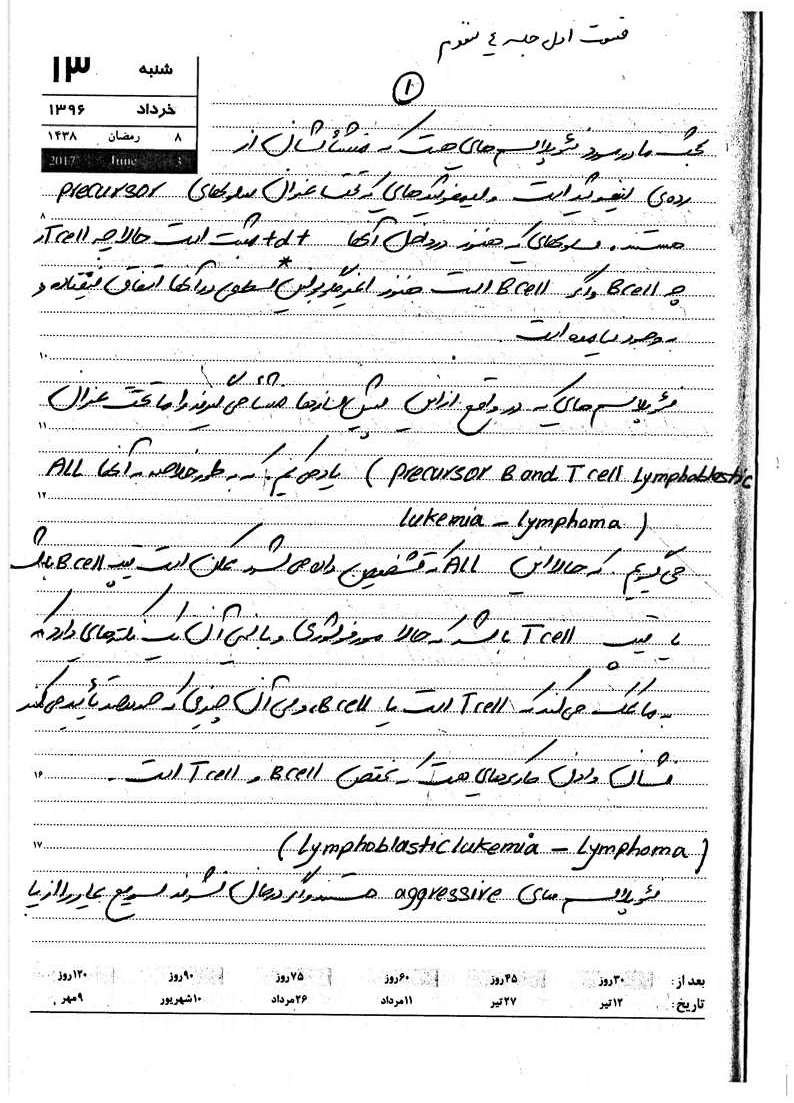 قسمت اول جلسه ٤
۱
۱۳ شنبه
۱۳۹۶ خرداد
۱۴۳۸ رمضان ۸
2017 June 3
بحث ما در مورد نئوپلاسم های هست که منشأشان از
رده‌ی لنفوئید است و لنفوئیدهای که تحت عنوان سلولهای precursor
۸
هستند. سلولهای که هنوز در داخل آنها tdt مثبت است حالا چه Tcell از
چه Bcell واگر Bcell است هنوز ایمیونوگلوبولین سطحی در آنها اتفاق نیفتاده و
بوجود نیامده است
۱۰
نئوپلاسم های که در واقع از این پیش سازها منشا می گیرند را ما تحت عنوان
۱۱
(precursor B and T cell Lymphoblastic یاد می کنیم. که به طور خلاصه به آنها ALL
۱۲
lukemia - lymphoma)
می گوییم. که حالا این ALL که تشخیص داده می شود ممکن است تیپ Bcell باشد
یا تیپ Tcell باشد که حالا مورفولوژی و بالینی آن یک نکته‌های دارد که
به ما کمک می کند که Tcell است یا Bcell، ولی آن چیزی که صددرصد تأیید می کند
نشان دادن مارکرهای هست که مختص Bcell و Tcell است.
۱۶
(lymphoblastic lukemia - lymphoma)
۱۷
نئوپلاسم های aggressive هستند و اگر درمان نشوند سریع بیمار را از پا
بعد از: ۳۰روز ۴۵روز ۶۰روز ۷۵روز ۹۰روز ۱۲۰روز
تاریخ: ۱۲تیر ۲۷تیر ۱۱مرداد ۲۶مرداد ۱۰شهریور ۹مهر